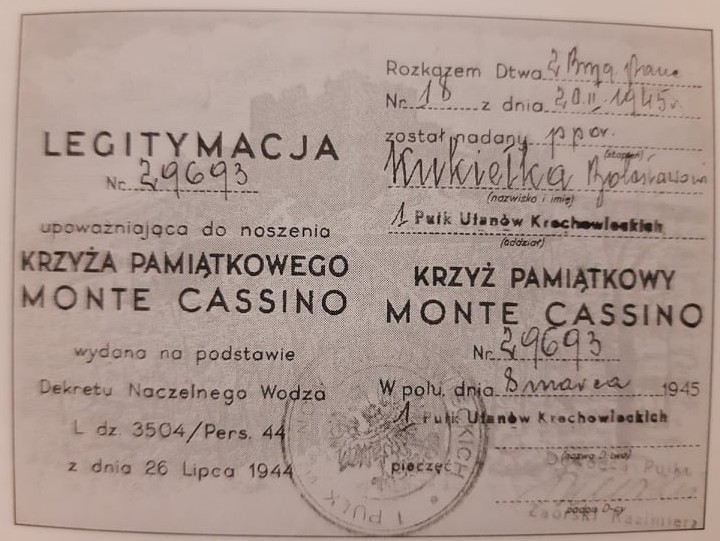 LEGITYMACJA
Nr. 29693
upoważniająca do noszenia
KRZYŻA PAMIĄTKOWEGO
MONTE CASSINO
wydana na podstawie
Dekretu Naczelnego Wodza
L dz. 3504/Pers. 44
z dnia 26 Lipca 1944
Rozkazem Dtwa 2 Bryg. Panc
Nr. 18 z dnia 20.II.1945r.
został nadany ppor.
(stopień)
Kukiełka Bolesławowi
(nazwisko i imię)
1 Pułk Ułanów Krechowieckich
(oddział)
KRZYŻ PAMIĄTKOWY
MONTE CASSINO
Nr. 29693
W polu, dnia 8 marca 1945
1 Pułk Ułanów Krechowieckich
(nazwa D-twa)
pieczęć
Dowódca Pułku
podpis D-cy
Zaorski Kazimierz
1 PUŁK